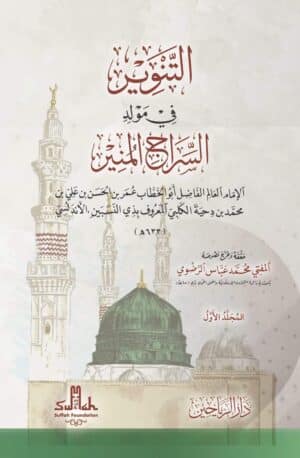 التَّنْوِيْر
فِي مَوْلِدِ
السِّرَاجِ الْمُنِيْر
الإمام العالم الفاضل أبو الخطاب عمر بن الحسن بن علي بن
محمد بن دحية الكلبي المعروف بذي النسبين، الأندلسي
(٦٣٣هـ)
المفتي محمد عباس الرضوي
المجلد الأول
Suffah
Suffah Foundation
دار الرياحين